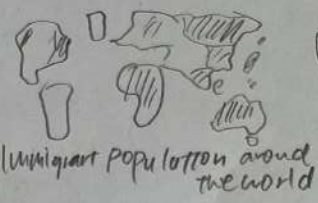 Immigrant population around
the world